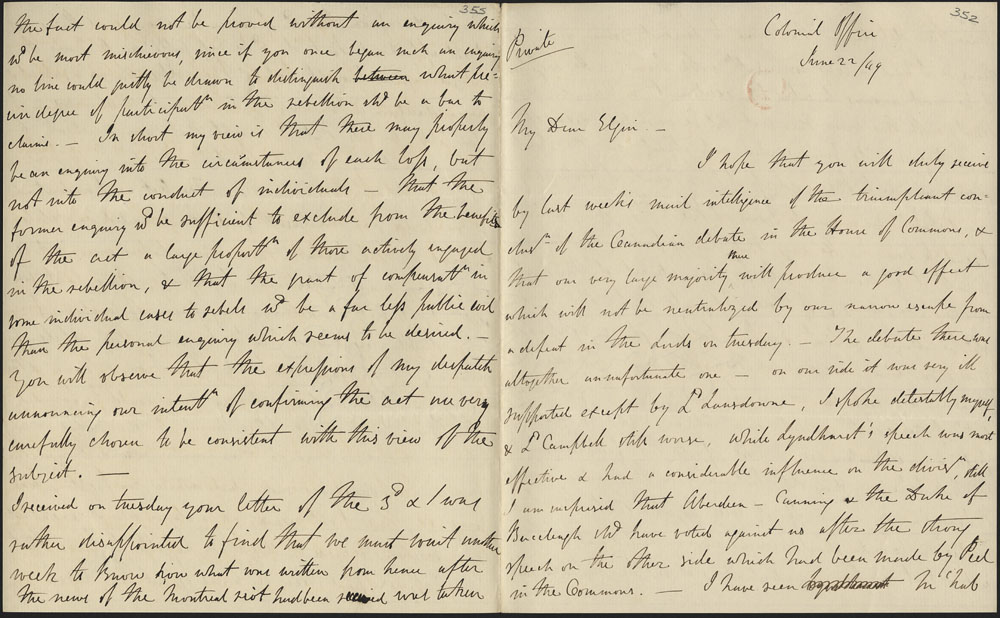 352
Private
Colonial Office
June 22/49
My Dear Elgin. —
I hope that you will duly receive
by last weeks mail intelligence of the triumphant con-
clusn of the Canadian debate in the House of Commons, &
that our very large majority there will produce a good effect
which will not be neutralized by our narrow escape from
a defeat in the Lords on tuesday. — The debate there was
altogether an unfortunate one — on our side it was very ill
supported except by Ld Lansdowne, I spoke detestably myself,
& Ld Campbell still worse, while Lyndhurst's speech was most
effective & had a considerable influence on the divisn, still
I am surprised that Aberdeen — Canning & the Duke of
Buccleugh shd have voted against us after the strong
speech on the other side which had been made by Peel
in the Commons. — I have seen Mc Nab
355
the fact could not be proved without an enquiry which
wd be most mischievous, since if you once began such an enquiry
no line could justly be drawn to distinguish between what pre-
cise degree of participatn in the rebellion shd be a bar to
claims. — In short my view is that there may properly
be an enquiry into the circumstances of each loss, but
not into the conduct of individuals — that the
former enquiry wd be sufficient to exclude from the benefits
of the act a large proportn of those actively engaged
in the rebellion, & that the grant of compensatn in
some individual cases to rebels wd be a far less public evil
than the personal enquiry which seems to be desired. —
You will observe that the expressions of my despatch
announcing our intentn of confirming the act are very
carefully chosen to be consistent with this view of the
subject. —
I received on tuesday your letter of the 3d & I was
rather disappointed to find that we must wait another
week to know how what was written from hence after
the news of the Montreal riot had been received was taken